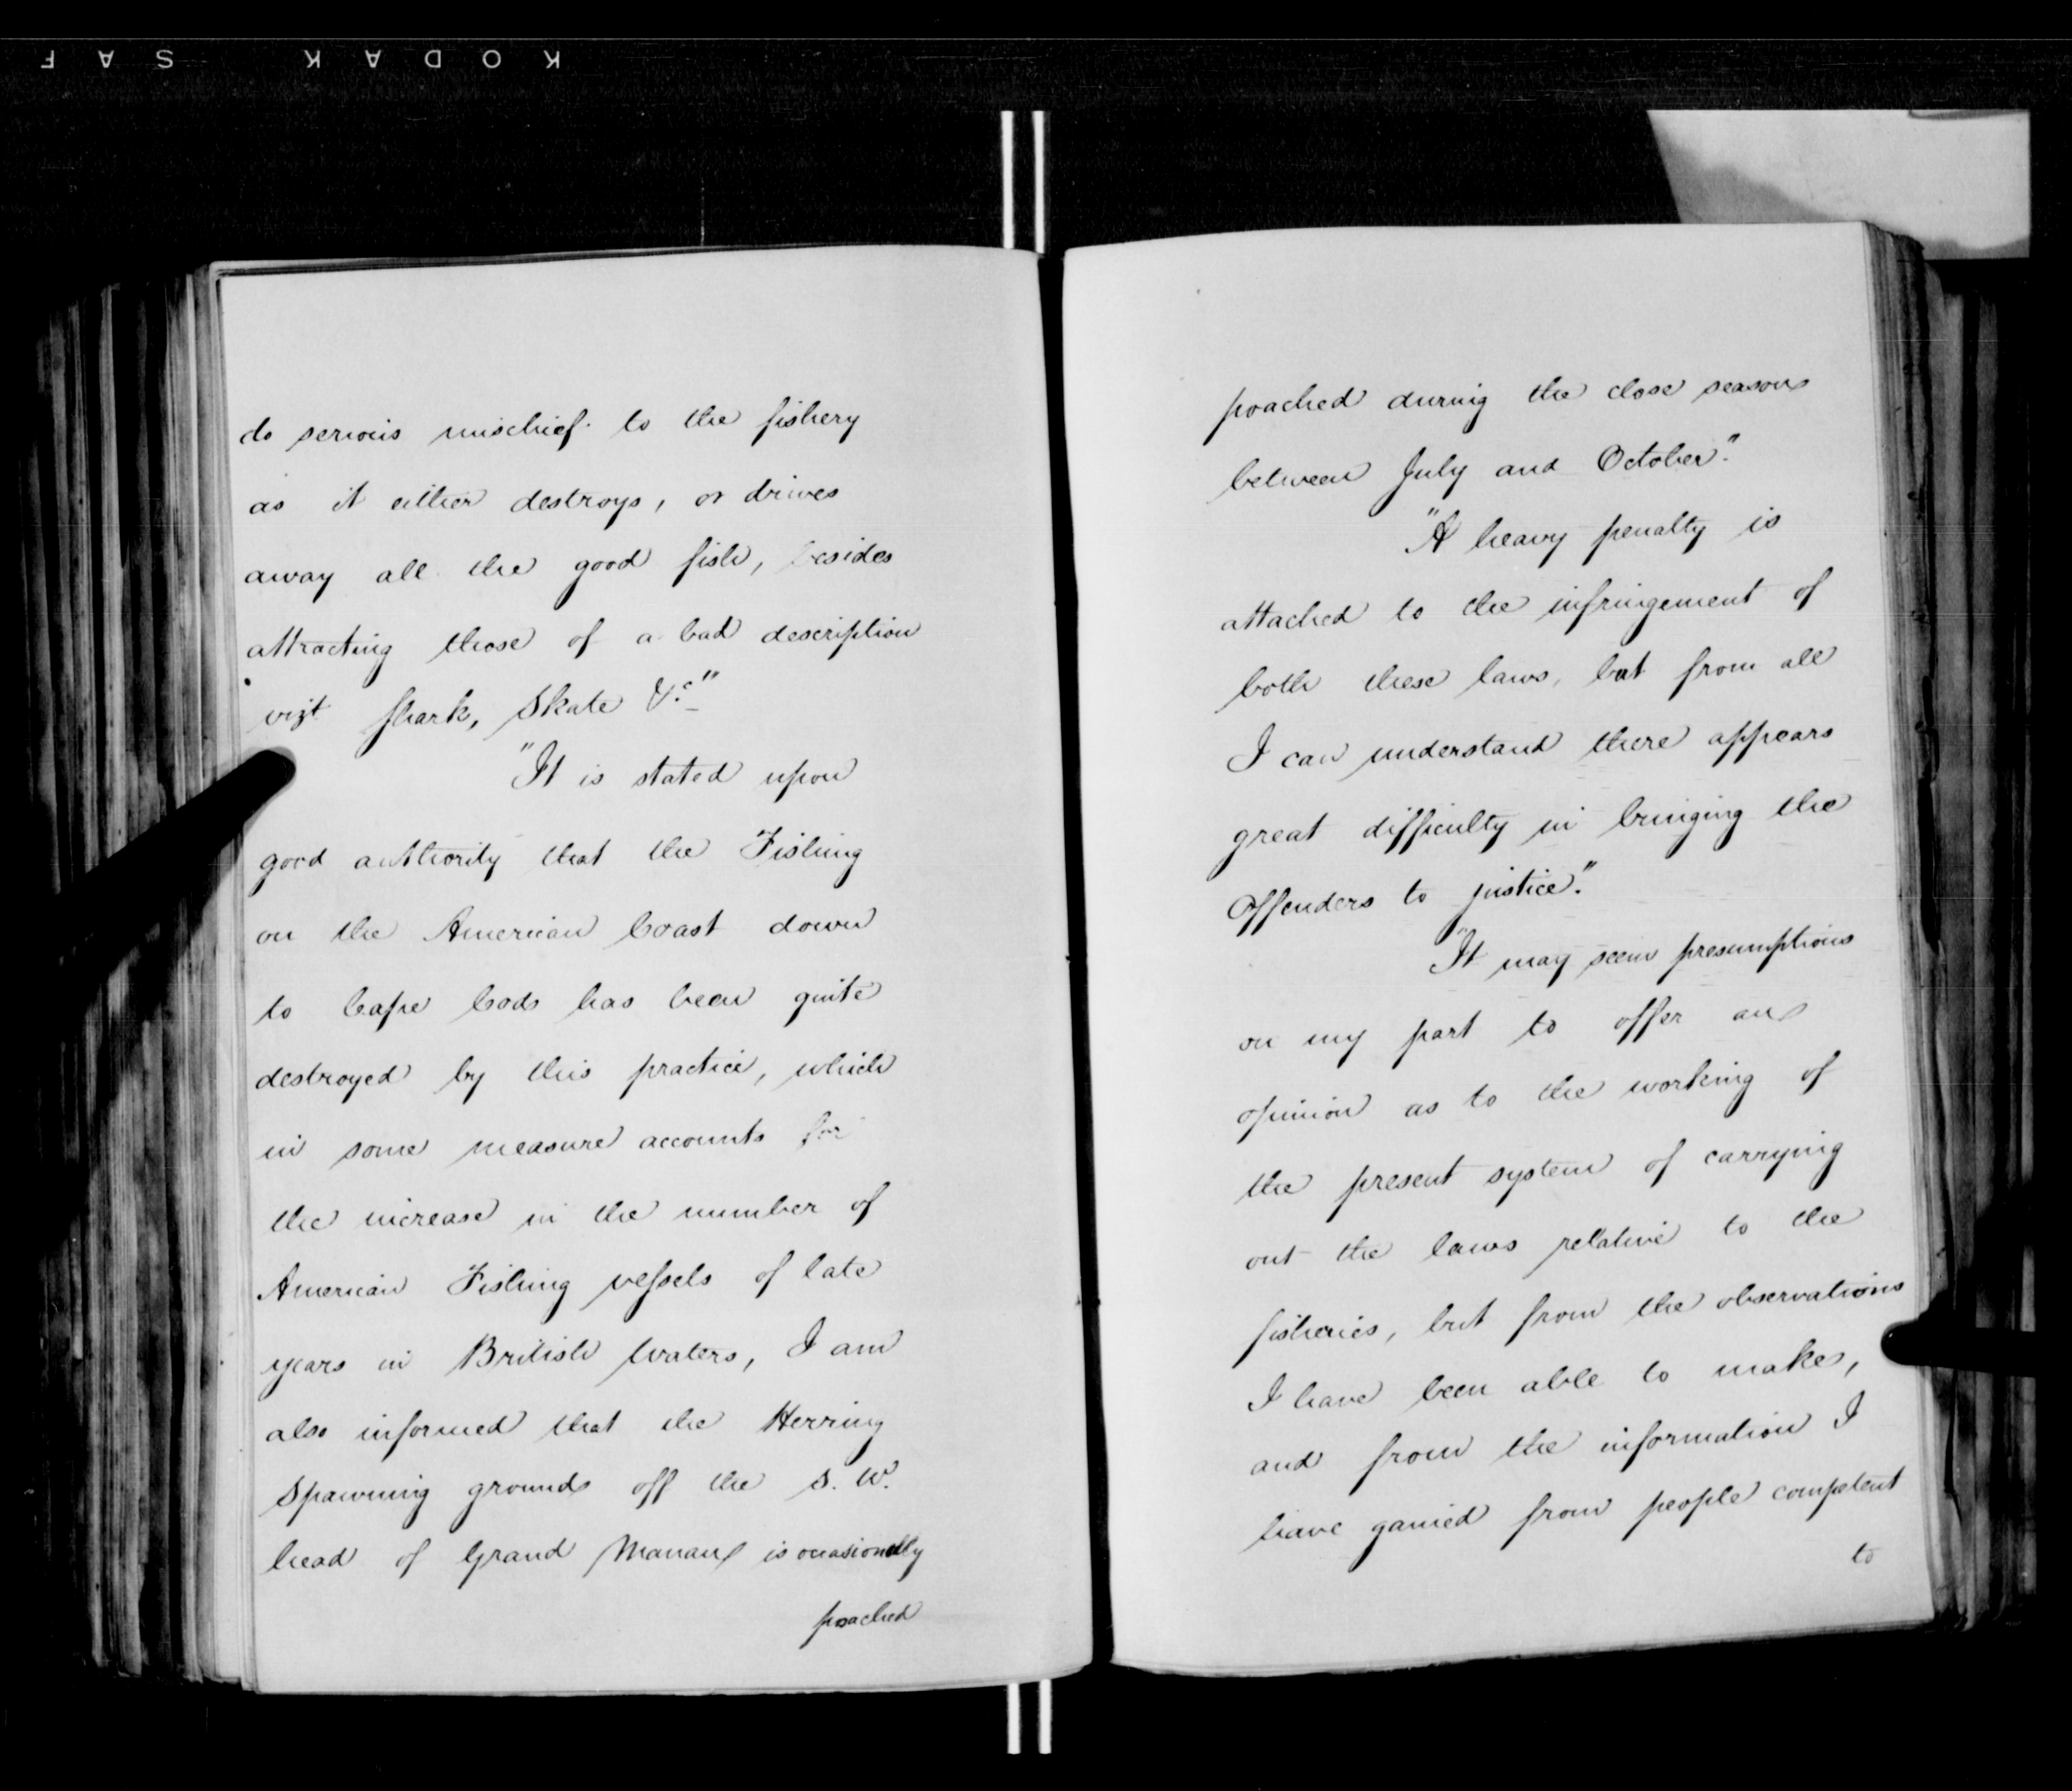 KODAK SAF
do serious mischief to the fishery
as it either destroys, or drives
away all the good fish, besides
attracting those of a bad description
vizt Shark, Skate &c"
"It is stated upon
good authority that the Fishing
on the American Coast down
to Cape Cod has been quite
destroyed by this practice, which
in some measure accounts for
the increase in the number of
American Fishing vessels of late
years in British Waters, I am
also informed that the Herring
Spawning grounds off the S. W.
head of Grand Manan is occasionally
poached
poached during the close season
between July and October."
"A heavy penalty is
attached to the infringement of
both these laws, but from all
I can understand there appears
great difficulty in bringing the
Offenders to justice."
"It may seem presumptious
on my part to offer an
opinion as to the working of
the present system of carrying
out the laws relative to the
fisheries, but from the observations
I have been able to make,
and from the information I
have gained from people competent
to